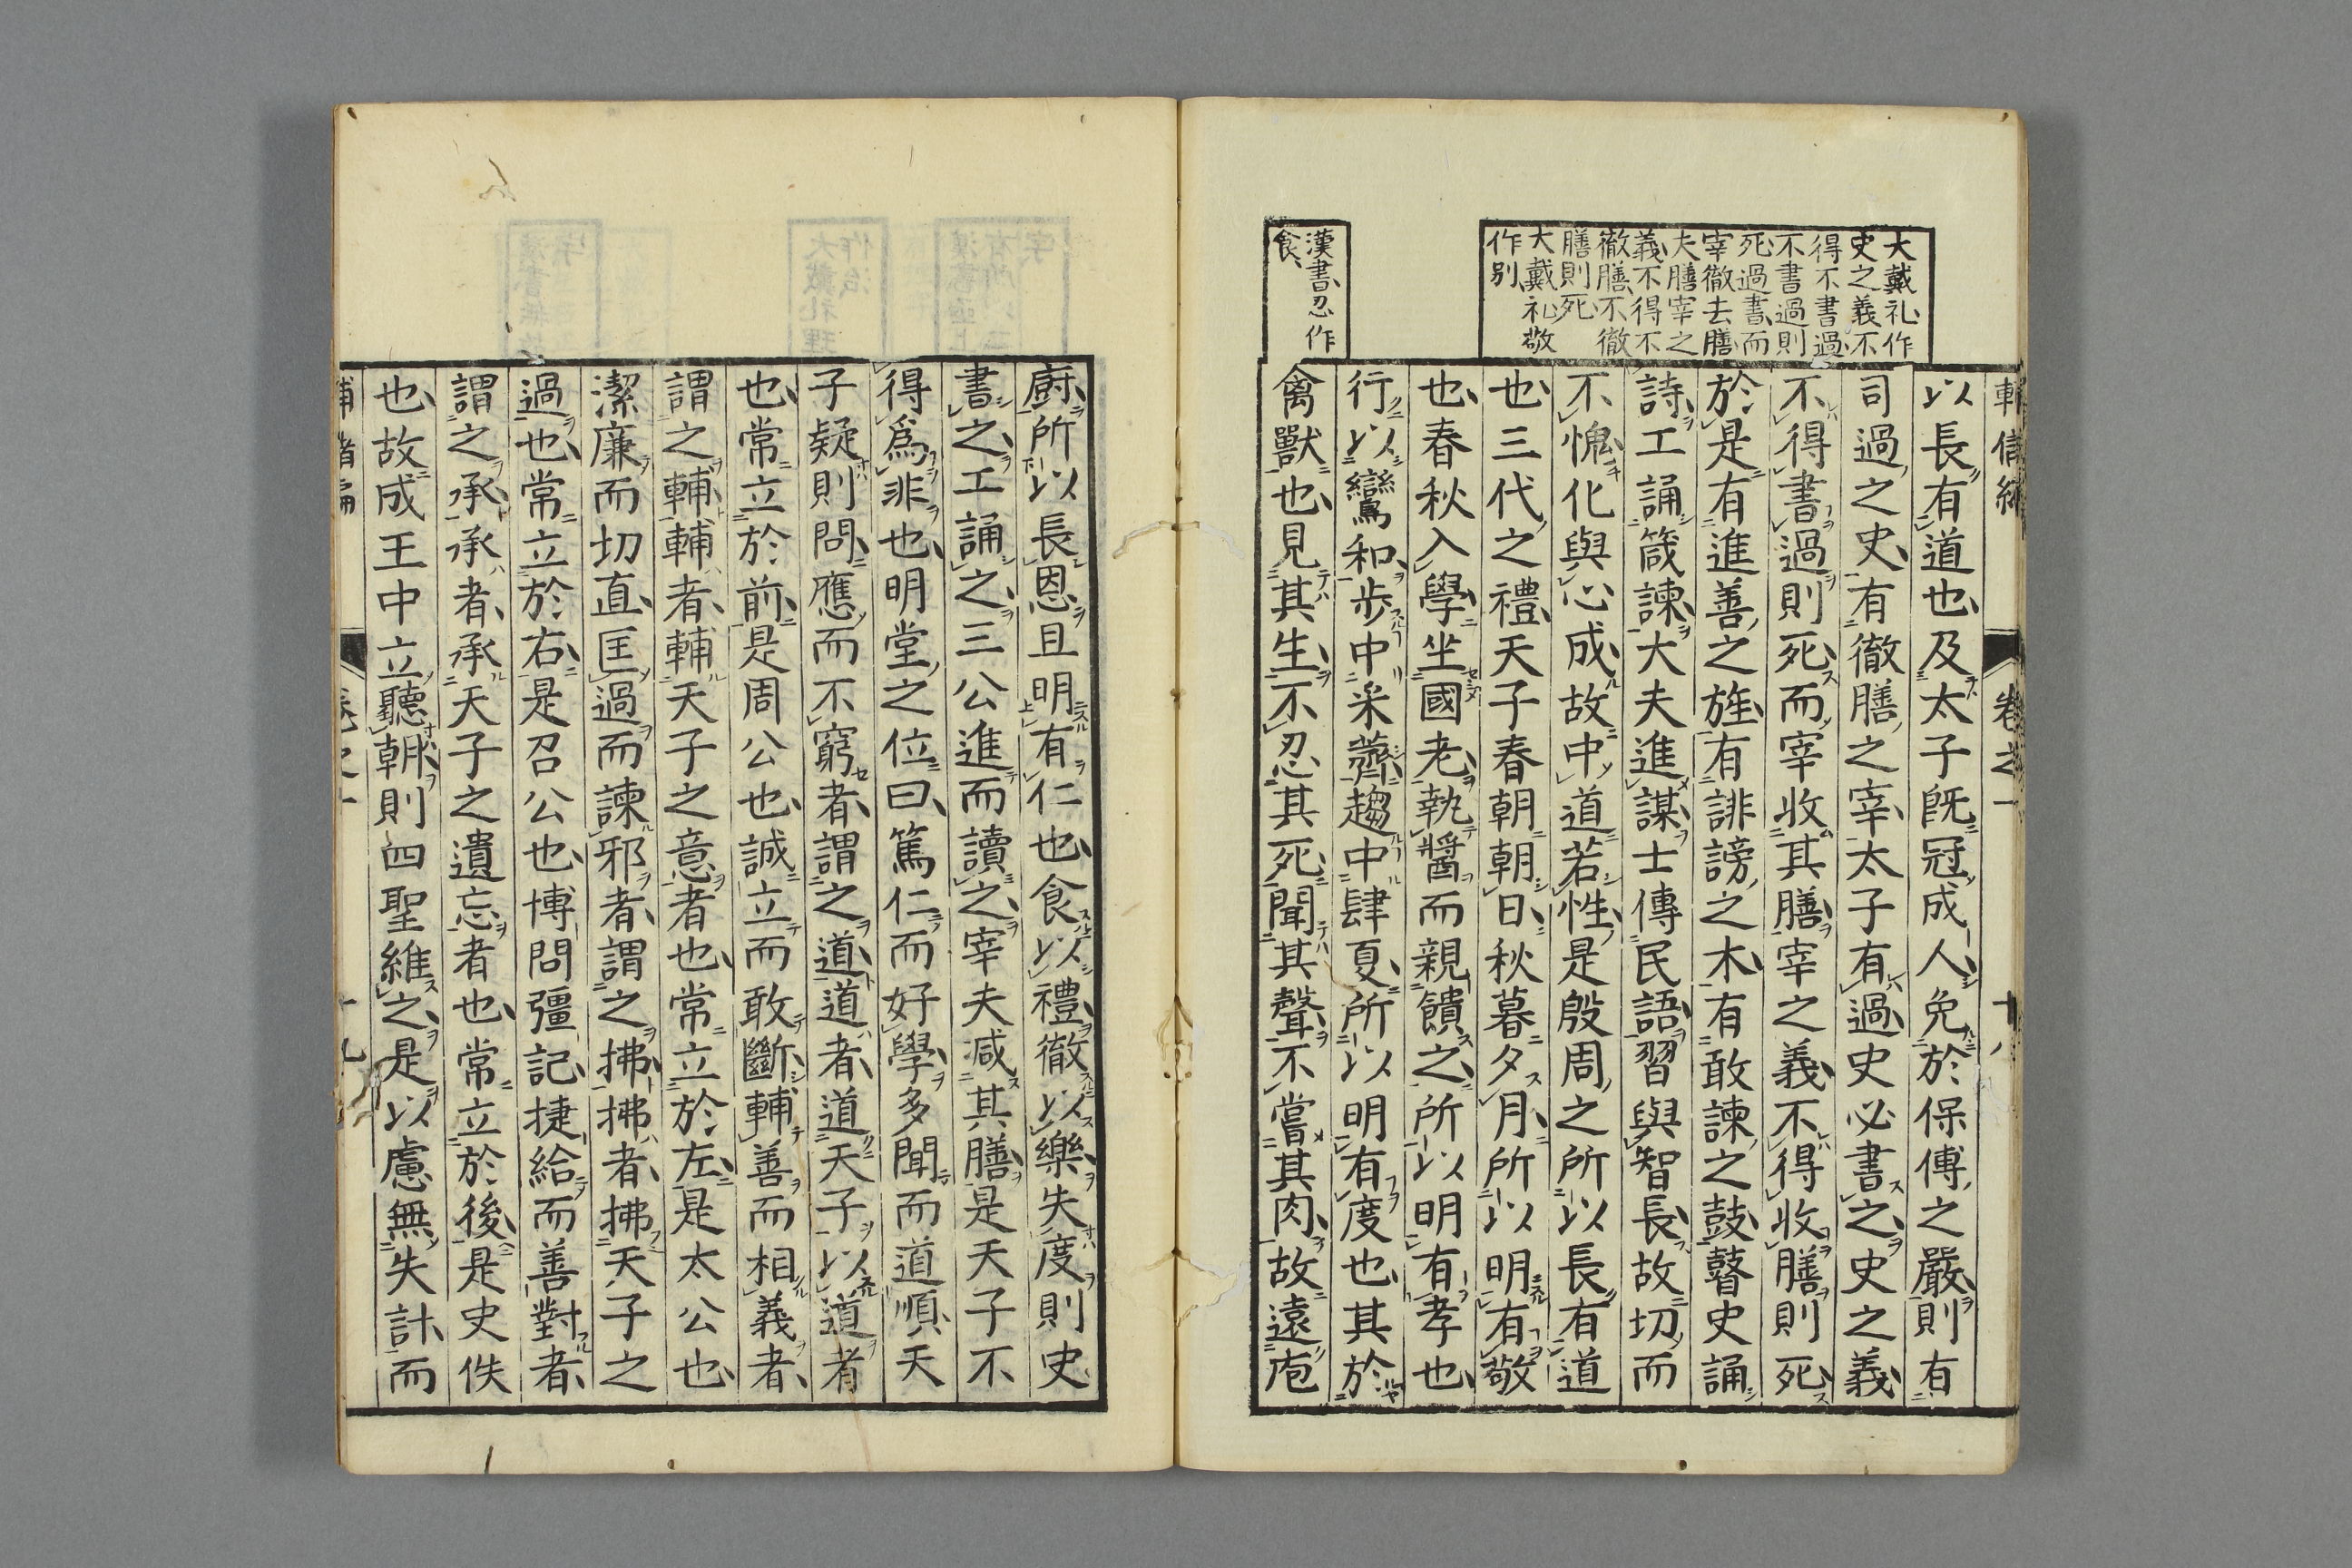 大戴礼作
史之義不
得不書過
不書過則
死過書而
宰徹去膳
夫膳宰之
義不得不
徹膳不徹
膳則死
大戴礼敬
作別
漢書忍作
食
卷之一
十八
以長有道也及太子既冠成人免於保傅之嚴則有
司過之史有徹膳之宰太子有過史必書之史之義
不得書過則死而宰收其膳宰之義不得收膳則死
於是有進善之旌有誹謗之木有敢諫之鼓瞽史誦
詩工誦箴諫大夫進謀士傳民語習與智長故切而
不愧化與心成故中道若性是殷周之所以長有道
也三代之禮天子春朝朝日秋暮夕月所以明有敬
也春秋入學坐國老執醬而親饋之所以明有孝也
行以鸞和步中采薺趨中肆夏所以明有度也其於
禽獸也見其生不忍其死聞其聲不嘗其肉故遠庖
廚所以長恩且明有仁也食以禮徹以樂失度則史
書之工誦之三公進而讀之宰夫減其膳是天子不
得爲非也明堂之位曰篤仁而好學多聞而道順天
子疑則問應而不窮者謂之道道者道天子以道者
也常立於前是周公也誠立而敢斷輔善而相義者
謂之輔輔者輔天子之意者也常立於左是太公也
潔廉而切直匡過而諫邪者謂之拂拂者拂天子之
過也常立於右是召公也博問彊記捷給而善對者
謂之承承者承天子之遺忘者也常立於後是史佚
也故成王中立聽朝則四聖維之是以慮無失計而